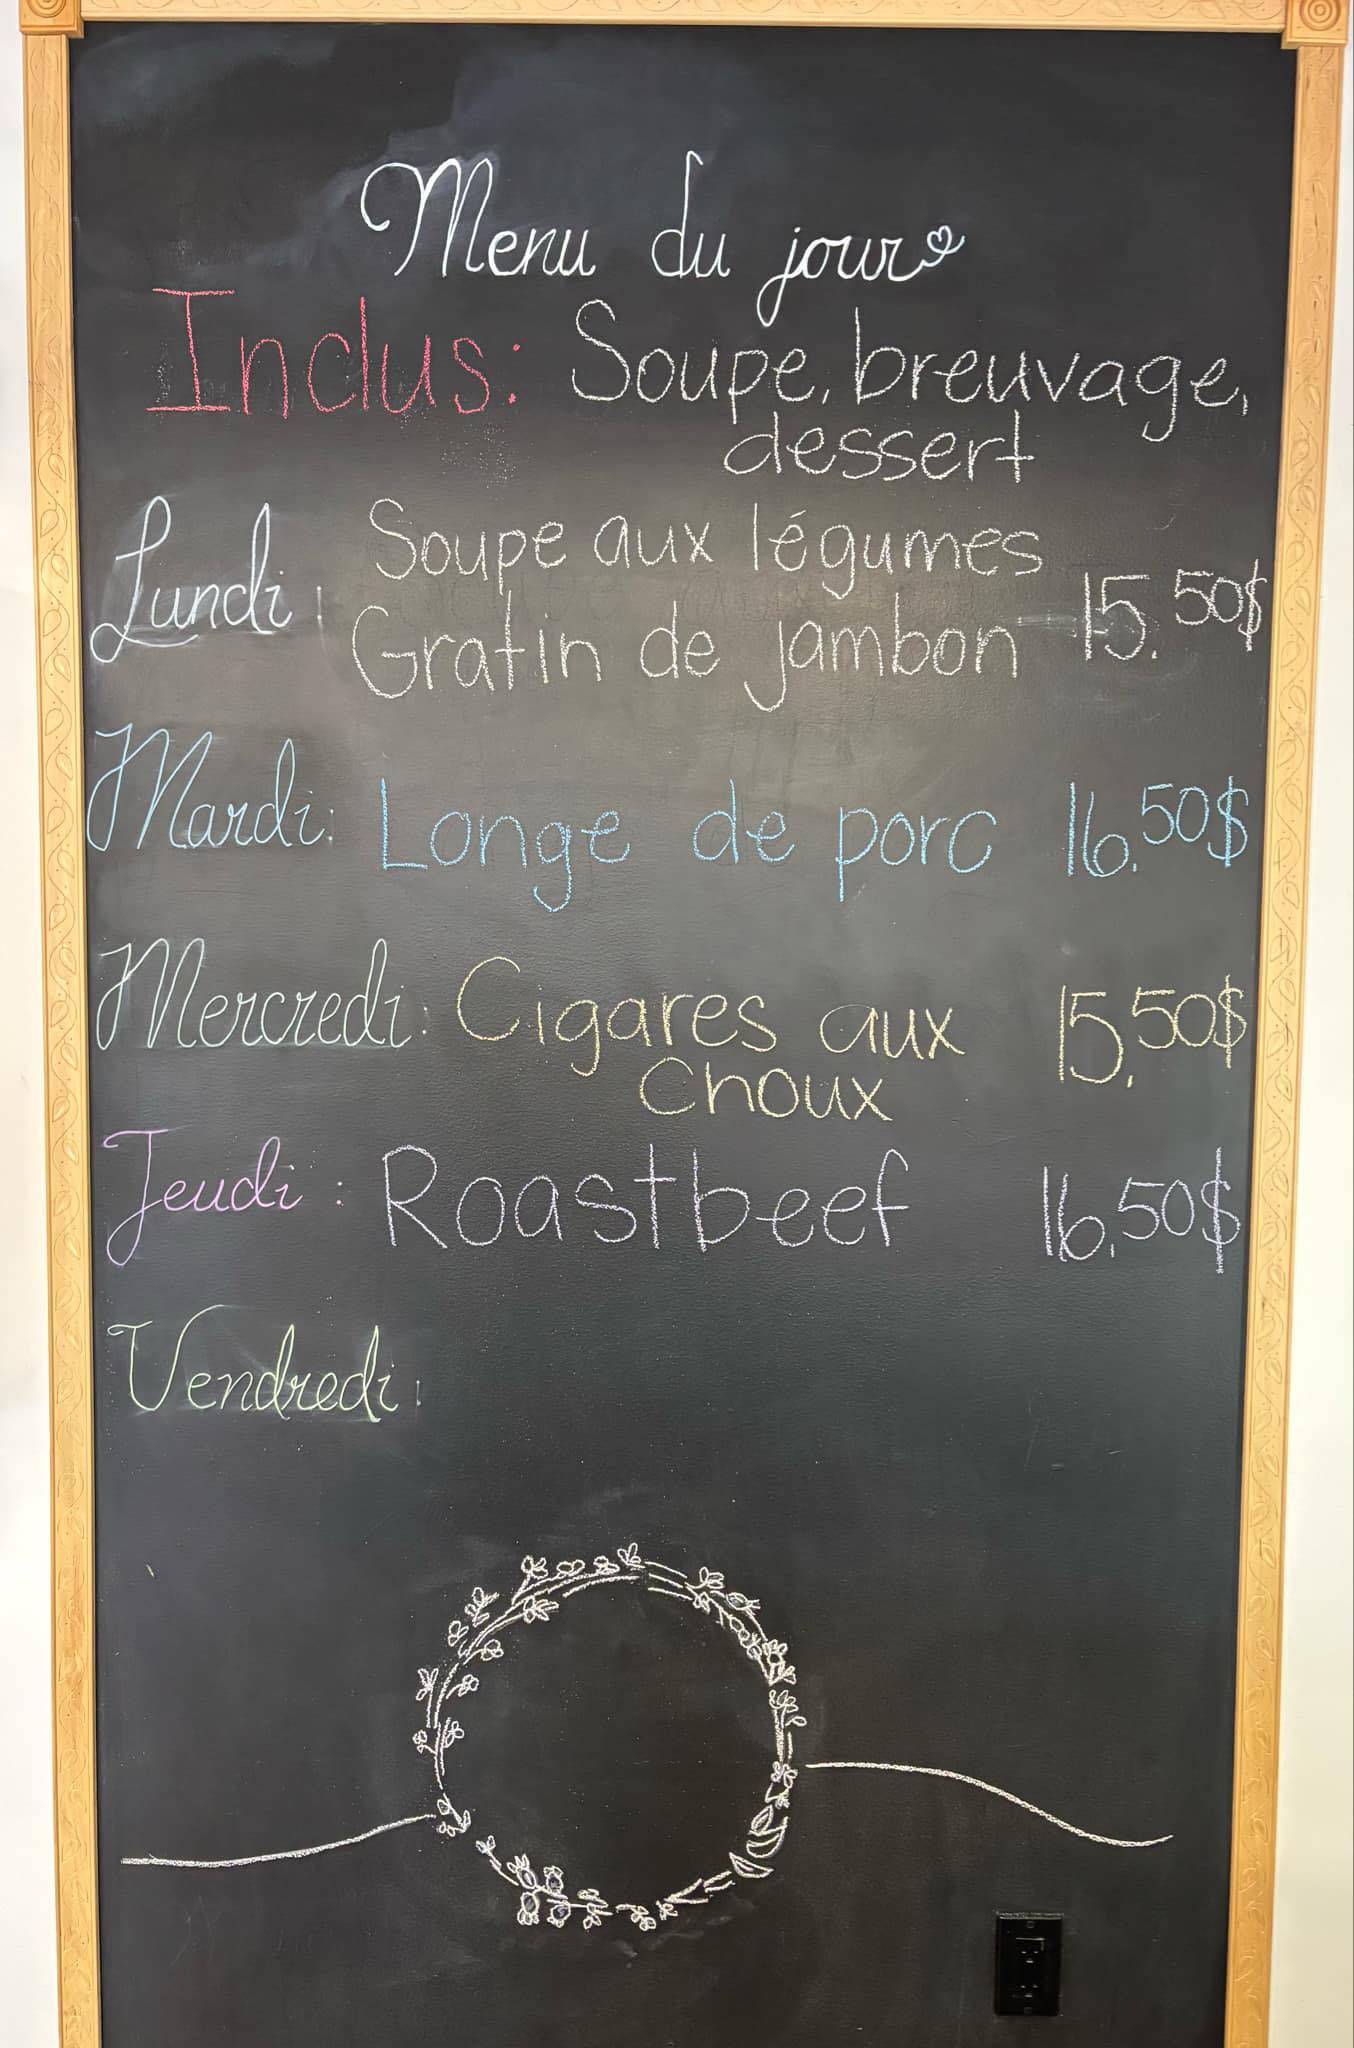 Menu du jour
Inclus: Soupe, breuvage,
dessert
Lundi: Soupe aux légumes
Gratin de jambon 15.50$
Mardi: Longe de porc 16.50$
Mercredi: Cigares aux
choux 15.50$
Jeudi: Roastbeef 16.50$
Vendredi: